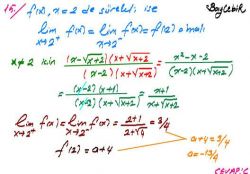 15/ f(x), x=2 de sürekli ise
lim x→2⁺ f(x) = lim x→2⁻ f(x) = f(2) olmalı
x≠2 için (x-√x+2)(x+√x+2) / (x-2)(x+√x+2) = x²-x-2 / (x-2)(x+√x+2)
= (x-2)(x+1) / (x-2)(x+√x+2) = x+1 / x+√x+2
lim x→2⁺ f(x) = lim x→2⁻ f(x) = 2+1 / 2+√4 = 3/4
f(2) = a+4
a+4 = 3/4
a = -13/4
CEVAP:C